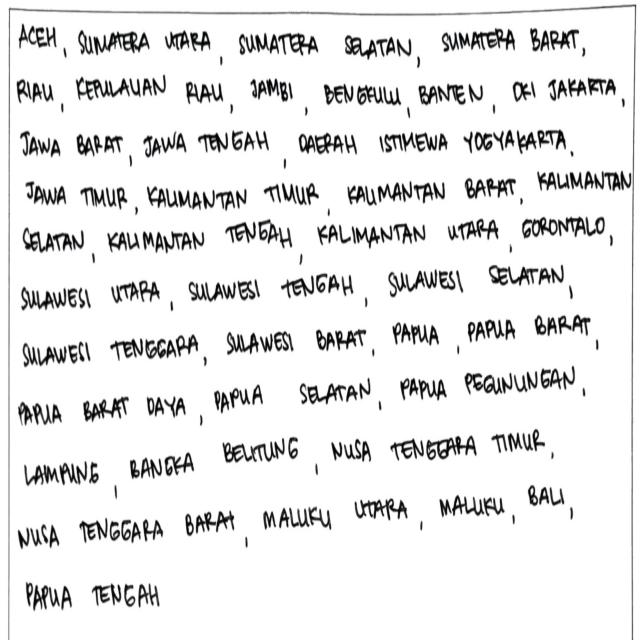 ACEH, SUMATERA UTARA, SUMATERA SELATAN, SUMATERA BARAT,
RIAU, KEPULAUAN RIAU, JAMBI, BENGKULU, BANTEN, DKI JAKARTA,
JAWA BARAT, JAWA TENGAH, DAERAH ISTIMEWA YOGYAKARTA,
JAWA TIMUR, KALIMANTAN TIMUR, KALIMANTAN BARAT, KALIMANTAN
SELATAN, KALIMANTAN TENGAH, KALIMANTAN UTARA, GORONTALO,
SULAWESI UTARA, SULAWESI TENGAH, SULAWESI SELATAN,
SULAWESI TENGGARA, SULAWESI BARAT, PAPUA, PAPUA BARAT,
PAPUA BARAT DAYA, PAPUA SELATAN, PAPUA PEGUNUNGAN,
LAMPUNG, BANGKA BELITUNG, NUSA TENGGARA TIMUR,
NUSA TENGGARA BARAT, MALUKU UTARA, MALUKU, BALI,
PAPUA TENGAH